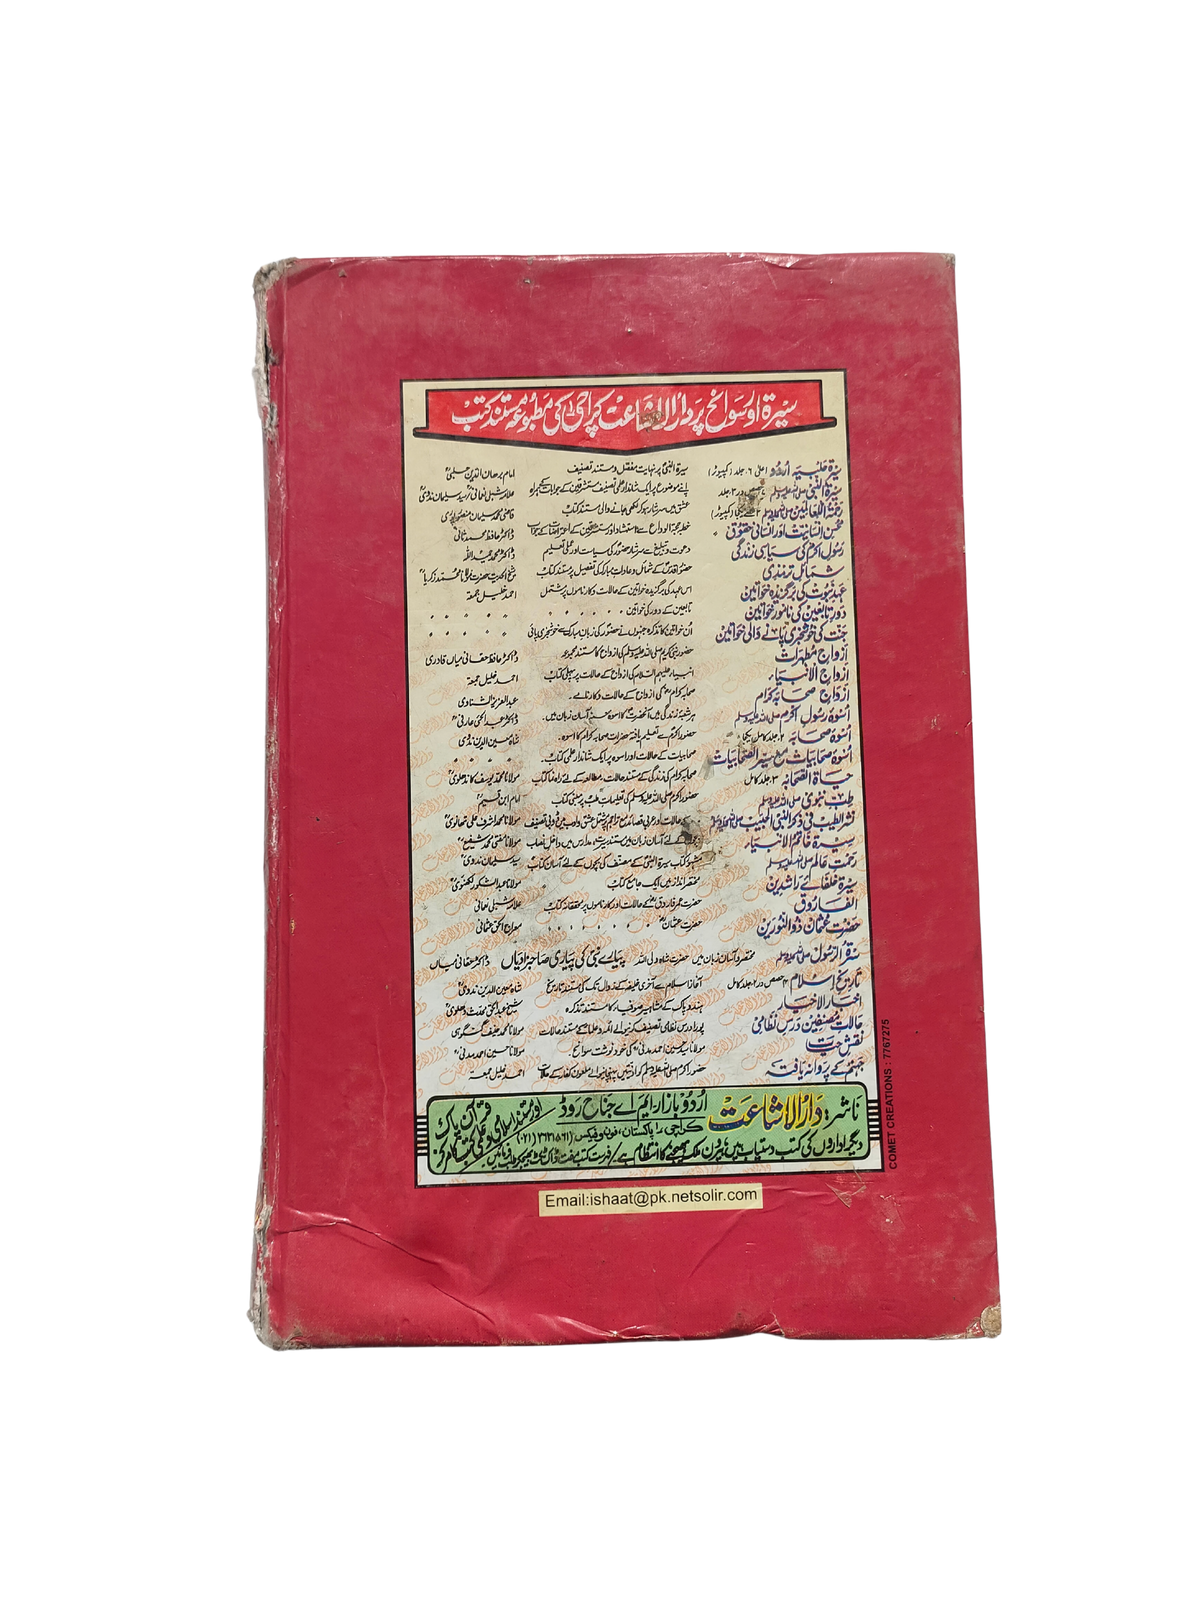 سیرۃ اور سوانح پر دارالاشاعت کراچی کی مطبوعہ مستند کتب
سیرۃ حلبیہ اُردو اعلیٰ ۶ جلد (کمپیوٹر) سیرۃ النبی پر نہایت مفصل و مستند تصنیف امام برھان الدین حلبی
سیرۃ النبی صلی اللہ علیہ وسلم اپنے موضوع پر ایک شاندار علمی تصنیف مستشرقین کے جوابات کے ہمراہ علامہ شبلی نعمانی سید سلیمان ندوی
رحمۃ اللعالمین صلی اللہ علیہ وسلم عشق میں سرشار ہو کر لکھی جانے والی مستند کتاب قاضی محمد سلیمان منصورپوری
محسن انسانیت اور انسانی حقوق خطبہ حجۃ الوداع سے استشاد اور مستشرقین کے اعتراضات کے جوابات ڈاکٹر حافظ محمد ثانی
رسول اکرم کی سیاسی زندگی دعوت و تبلیغ سے سرشار حضور کی سیاست اور عملی تعلیم ڈاکٹر محمد حمید اللہ
شمائل ترمذی حضور اقدس کے شمائل و عادات مبارکہ کی تفصیل پر مستند کتاب شیخ الحدیث حضرت مولانا محمد زکریا
عہد نبوت کی برگزیدہ خواتین اس عہد کی برگزیدہ خواتین کے حالات و کارناموں پر مشتمل احمد خلیل جمعہ
دور تابعین کی نامور خواتین تابعین کے دور کی خواتین
جنت کی خوشخبری پانے والی خواتین اُن خواتین کا تذکرہ جنہوں نے حضور کی زبان مبارک سے خوشخبری پائی
ازواج مطہرات حضور نبی کریم صلی اللہ علیہ وسلم کی ازواج کا مستند مجموعہ ڈاکٹر حافظ حقانی میاں قادری
ازواج الانبیاء انبیاء علیہم السلام کی ازواج کے حالات پر پہلی کتاب احمد خلیل جمعہ
ازواج صحابہ کرام صحابہ کرام کی ازواج کے حالات و کارنامے۔ عبدالعزیز الشناوی
اسوۂ رسول اکرم صلی اللہ علیہ وسلم ہر شعبۂ زندگی میں آنحضرت کا اسوہ حسنہ آسان زبان میں۔ ڈاکٹر عبدالحئی عارفی
اسوۂ صحابہ ۲ جلد کامل یکجا حضور اکرم سے تعلیم یافتہ حضرات صحابہ کرام کا اسوہ۔ شاہ معین الدین ندوی
اسوۂ صحابیات مع سیر الصحابیات صحابیات کے حالات اور اسوہ پر ایک شاندار علمی کتاب۔
حیاۃ الصحابہ ۳ جلد کامل صحابہ کرام کی زندگی کے مستند حالات۔ مطالعہ کے لئے راہ نما کتاب مولانا محمد یوسف کاندھلوی
طب نبوی صلی اللہ علیہ وسلم حضور اکرم صلی اللہ علیہ وسلم کی تعلیمات طب پر مبنی کتاب امام ابن قیم
نشر الطیب فی ذکر النبی الحبیب صلی اللہ علیہ وسلم کے حالات اور عربی قصائد مع تراجم پر مشتمل عشق و ادب میں ڈوبی تصنیف مولانا محمد اشرف علی تھانوی
سیرۃ خاتم الانبیاء کے لئے آسان زبان میں مستند سیرت، مدارس میں داخل نصاب مولانا مفتی محمد شفیع
رحمت عالم صلی اللہ علیہ وسلم مشہور کتاب سیرۃ النبی کے مصنف کی بچوں کے لئے آسان کتاب سید سلیمان ندوی
سیرۃ خلفائے راشدین مختصر انداز میں ایک جامع کتاب مولانا عبدالشکور لکھنوی
الفاروق حضرت عمر فاروق کے حالات اور کارناموں پر محققانہ کتاب علامہ شبلی نعمانی
حضرت عثمان ذوالنورین حضرت عثمان معراج الحق عثمانی
سیرۃ الرسول صلی اللہ علیہ وسلم مختصر و آسان زبان میں حضرت شاہ ولی اللہ پیارے نبی کی پیاری صاحبزادیاں ڈاکٹر حقانی میاں
تاریخ اسلام ۴ حصص در ۲ جلد کامل آغاز اسلام سے آخری خلیفہ کے زوال تک کی مستند تاریخ شاہ معین الدین ندوی
اخبار الاخیار ہند و پاک کے مشاہیر صوفیاء کا مستند تذکرہ شیخ عبدالحق محدث دہلوی
حالات مصنفین درس نظامی پورا درس نظامی تصنیف کرنیوالے ائمہ و علماء کے مستند حالات مولانا محمد حنیف گنگوہی
نقش حیات مولانا سید حسین احمد مدنی کی خود نوشت سوانح۔ مولانا حسین احمد مدنی
جہنم کے پروانہ یافتہ حضور اکرم صلی اللہ علیہ وسلم کو اذیتیں پہنچانیوالے ملعون کفار کے حالات احمد خلیل جمعہ
ناشر: دارالاشاعت اُردو بازار۔ ایم اے جناح روڈ
کراچی ۱ پاکستان، فون و فیکس
دیگر اداروں کی کتب دستیاب ہیں، بیرون ملک بھیجنے کا انتظام ہے / فہرست کتب مفت ڈاک ٹکٹ بھیج کر طلب فرمائیں۔
قرآن پاک
اور مستند اسلامی و علمی کتب کا مرکز
COMET CREATIONS : 7767275
Email:ishaat@pk.netsolir.com